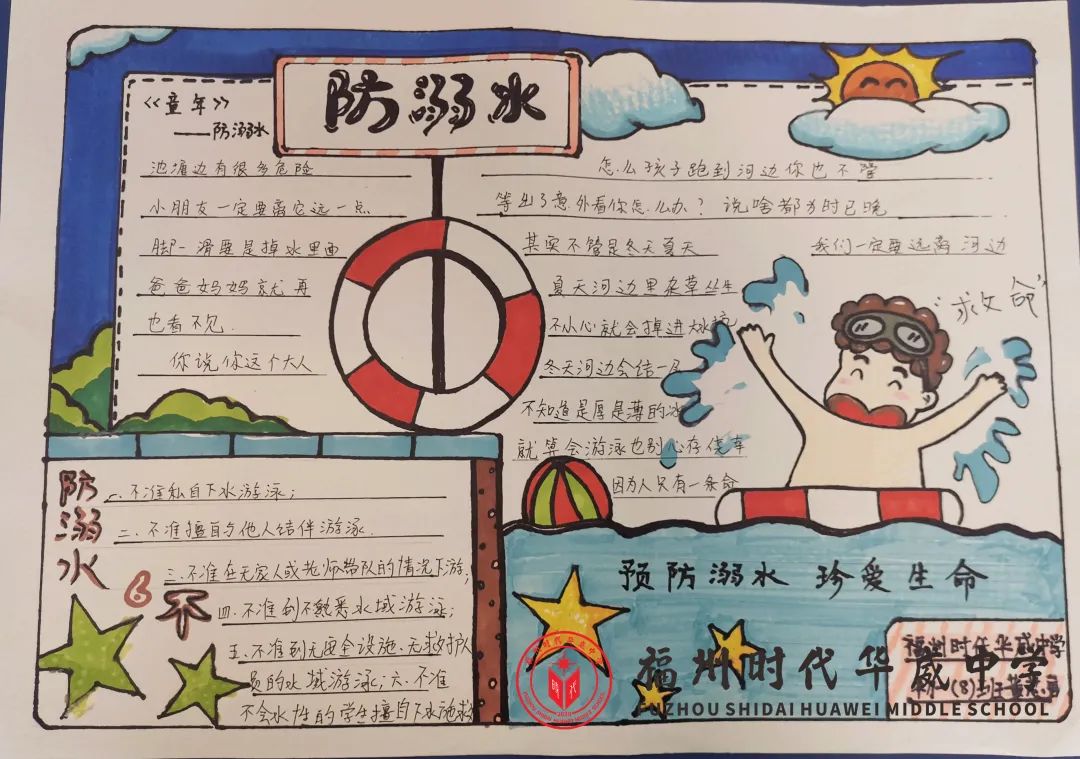 防溺水
《童年》
——防溺水
池塘边有很多危险
小朋友一定要离它远一点
脚一滑要是掉水里面
爸爸妈妈就再
也看不见.
你说你这个大人
怎么孩子跑到河边你也不管
等出了意外看你怎么办？说啥都为时已晚
其实不管是冬天夏天
我们一定要远离河边
夏天河边里杂草丛生
不小心就会掉进大水坑
冬天河边会结一层
不知道是厚是薄的冰
就算会游泳也别心存侥幸
因为人只有一条命
"救命"
防溺水
6不
一、不准私自下水游泳；
二、不准擅自与他人结伴游泳.
三、不准在无家人或老师带队的情况下游；
四、不准到不熟悉水域游泳；
五、不准到无安全设施、无救护
员的水域游泳；六、不准
不会水性的学生擅自下水施救
预防溺水 珍爱生命
福州时代华威中学
(8)班
福州时代华威中学
FUZHOU SHIDAI HUAWEI MIDDLE SCHOOL